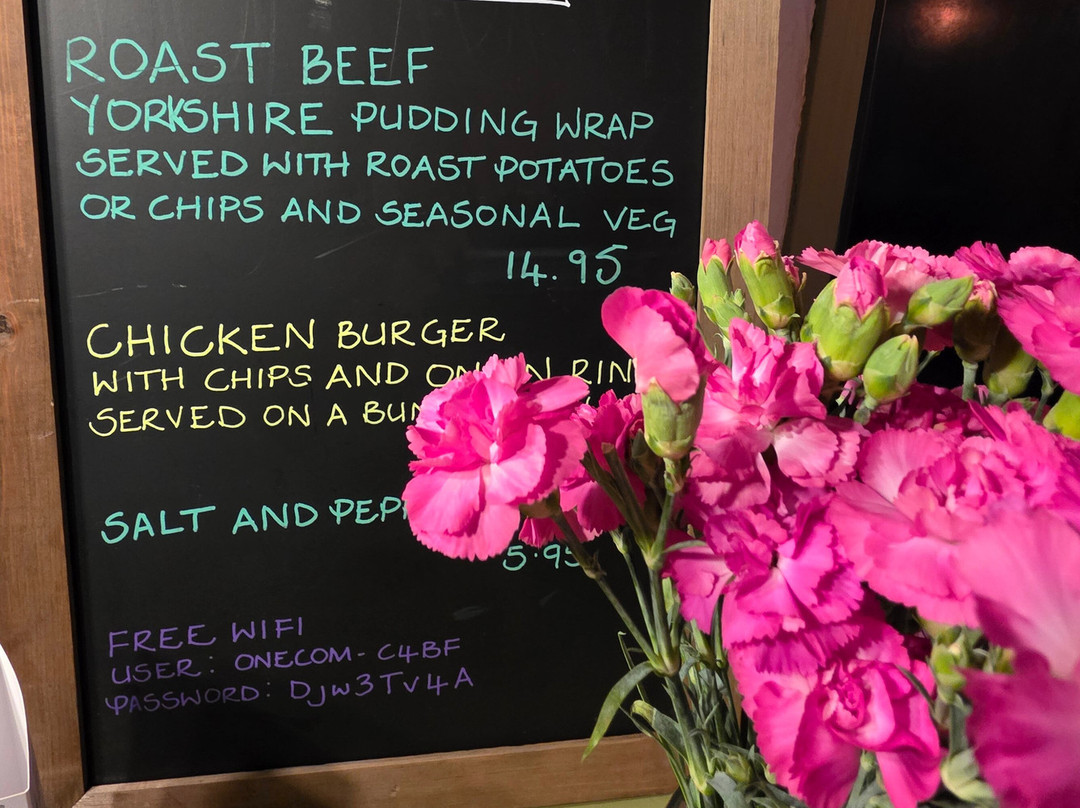 ROAST BEEF
YORKSHIRE PUDDING WRAP
SERVED WITH ROAST POTATOES
OR CHIPS AND SEASONAL VEG
14.95
CHICKEN BURGER
WITH CHIPS AND
SERVED ON A
SALT AND
5.95
FREE WIFI
USER: ONECOM-C4BF
PASSWORD: DJw3Tv4A